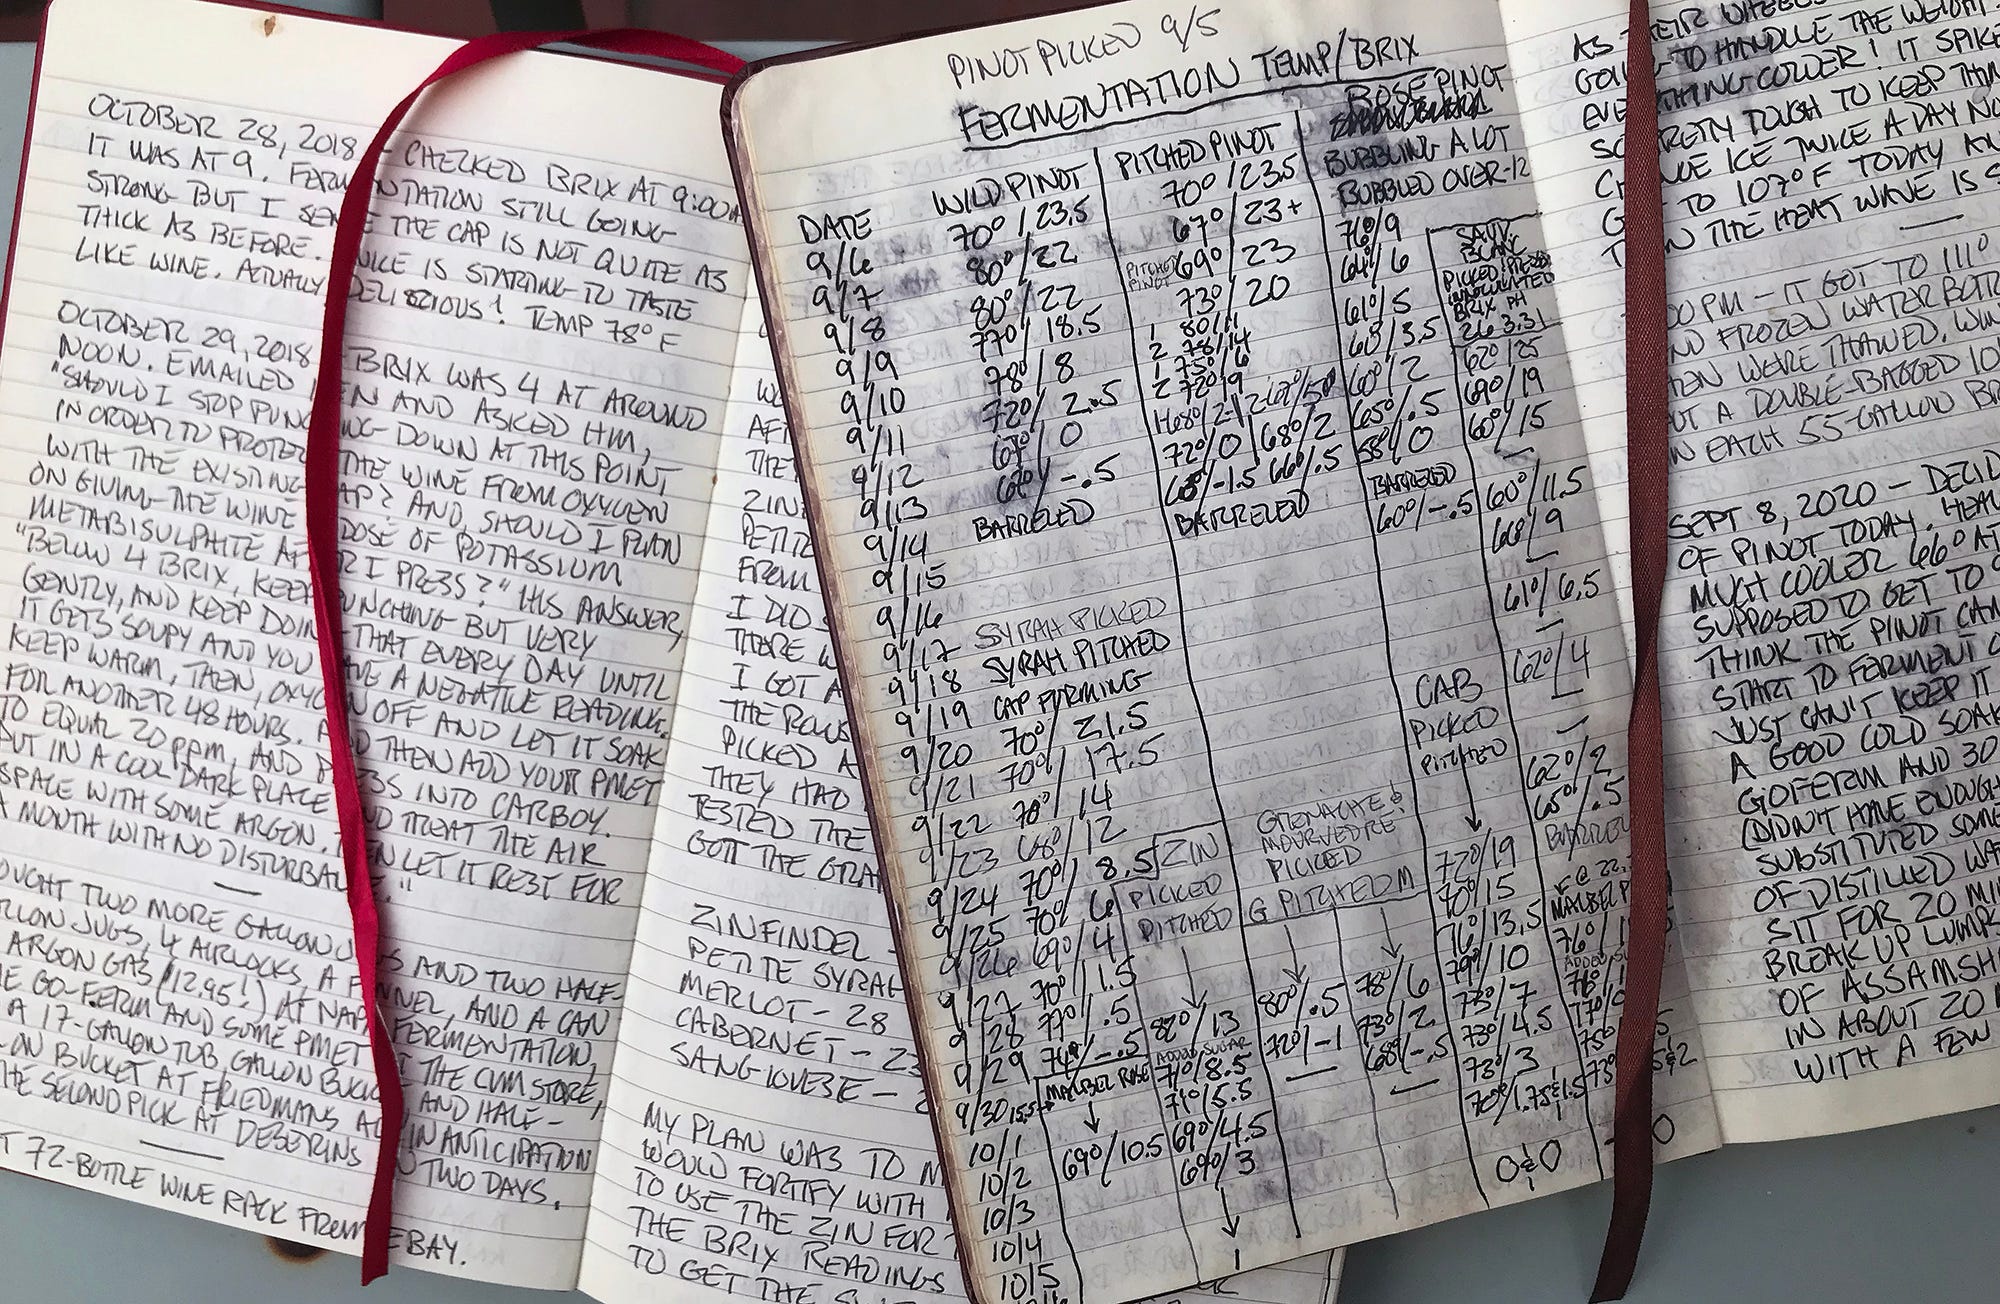 OCTOBER 28, 2018 - CHECKED BRIX AT 9:00A
IT WAS AT 9. FERM NTATION STILL GOING
STRONG BUT I SEN E THE CAP IS NOT QUITE AS
THICK AS BEFORE. JUICE IS STARTING TO TASTE
LIKE WINE. ACTUALLY DELICIOUS! TEMP 78° F
OCTOBER 29, 2018 BRIX WAS 4 AT AROUND
NOON. EMAILED EN AND ASKED HIM,
"SHOULD I STOP PUNC NG-DOWN AT THIS POINT
IN ORDER TO PROTECT THE WINE FROM OXYGEN
WITH THE EXISTING AP? AND, SHOULD I PLAN
ON GIVING THE WINE DOSE OF POTASSIUM
METABISULPHITE AF R I PRESS?" HIS ANSWER,
"BELOW 4 BRIX, KEEP UNCHING BUT VERY
GENTLY, AND KEEP DOIN THAT EVERY DAY UNTIL
IT GETS SOUPY AND YOU AVE A NEGATIVE READING.
KEEP WARM, THEN, OXYG N OFF AND LET IT SOAK
FOR ANOTHER 48 HOURS. A D THEN ADD YOUR PMET
TO EQUAL 20 PPM, AND P ESS INTO CARBOY.
PUT IN A COOL DARK PLACE ND TREAT THE AIR
SPACE WITH SOME ARGON. EN LET IT REST FOR
A MONTH WITH NO DISTURBAN E."
OUGHT TWO MORE GALLON J GS AND TWO HALF-
LLON JUGS, 4 AIRLOCKS, A F NNEL, AND A CAN
ARGON GAS (12.95!) AT NAPA FERMENTATION,
E GO-FERM AND SOME PMET T THE CUM STORE,
A 17-GALLON TUB, GALLON BUCK AND HALF-
ON BUCKET AT FRIEDMANS AL IN ANTICIPATION
HE SECOND PICK AT DESERINS TWO DAYS.
T 72-BOTTLE WINE RACK FROM EBAY.
AFT
THE
ZIN
PETITE
FROM
I DID
THERE W
I GOT A
THE ROWS
PICKED A
THEY HAD
TESTED THE
GOTT THE GRA
ZINFINDEL -
PETITE SYRAH
MERLOT - 28
CABERNET - 23
SANGIOVESE - 2
MY PLAN WAS TO M
WOULD FORTIFY WITH
TO USE THE ZIN FOR
THE BRIX READINGS
TO GET THE
PINOT PICKED 9/5
FERMENTATION TEMP/BRIX
DATE WILD PINOT PITCHED PINOT ROSE PINOT
BUBBLING A LOT
BUBBLED OVER-12
9/6 70°/23.5 70°/23.5
9/7 80°/22 67°/23+ 76/9
9/8 80°/22 PITCHED PINOT 69°/23 64°/6
9/9 77°/18.5 73°/20 61°/5
9/10 78°/8 1 80/11 68°/3.5
2 78/14
9/11 72°/2.5 1 75°/6 60°/2
2 72°/9
9/12 67°/0 1-68°/2-1 65°/.5
9/13 67°/-.5 72°/0 68°/2 58°/0
9/14 BARRELED 68°/-1.5 66°/.5 BARRELED
9/15 BARRELED 60°/-.5
9/16
9/17 SYRAH PICKED
9/18 SYRAH PITCHED
9/19 CAP FORMING
9/20 70°/21.5
9/21 70°/17.5
9/22 70°/14
9/23 68°/12
9/24 70°/8.5
9/25 70°/6
9/26 69°/4
9/27 70°/1.5
9/28 77°/.5
9/29 74°/-.5
9/30 15.5 MALBEC ROSE
10/1
10/2 69°/10.5
10/3
10/4
10/5
SAUV. BLANC
PICKED PRESSED
INOCULATED
BRIX PH
26 3.31
62°/25
69°/19
60°/15
60°/11.5
66°/9
61°/6.5
62°/4
62°/2
65°/.5
BARREL
ZIN
PICKED
PITCHED
82°/13
ADDED SUGAR
71°/8.5
71°/5.5
69°/4.5
69°/3
1
GRENACHE &
MOURVEDRE
PICKED
G PITCHED M
80°/.5 78°/6
72°/-1 73°/2
68°/-.5
CAB
PICKED
PITCHED
72°/19
70°/15
76°/13.5
79°/10
73°/7
73°/4.5
73°/3
70°/1.75&1.5
0&0
@ 22.
MALBEC P
76°/1
ADDED SU
76°/1
77°/
75°
73° 5&2
0
EIR WHEELS
AS
GOIN TO HANDLE THE WEIGHT
EVE THING COLDER! IT SPIKE
SO RETTY TOUGH TO KEEP THIN
CH NGE ICE TWICE A DAY NO
G TO 107° F TODAY AN
T N THE HEAT WAVE IS S
:00 PM - IT GOT TO 111°
ND FROZEN WATER BOTT
EN WERE THAWED. WIN
UT A DOUBLE-BAGGED 10
N EACH 55-GALLON BR
SEPT 8, 2020 - DECID
OF PINOT TODAY. HEAT
MUCH COOLER 66° AT
SUPPOSED TO GET TO
THINK THE PINOT CAN
START TO FERMENT O
JUST CAN'T KEEP IT
A GOOD COLD SOAK
GOFERM AND 30
(DIDN'T HAVE ENOUGH
SUBSTITUTED SOME
OF DISTILLED WAT
SIT FOR 20 MIN
BREAK UP LUMPS
OF ASSAMSH
IN ABOUT 20 M
WITH A FEW